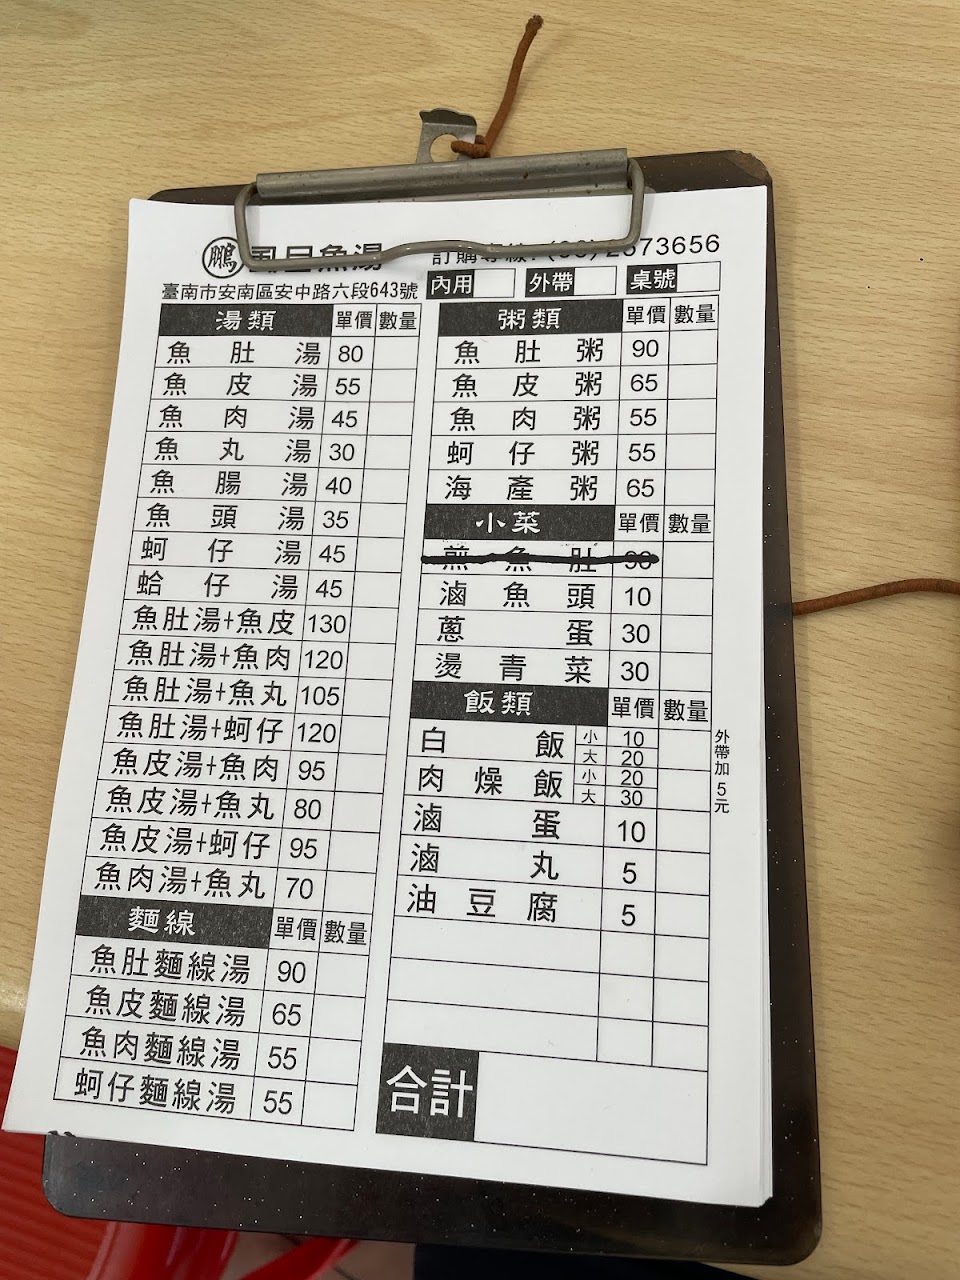 鵬 虱目魚湯
訂購專線:(06)2573656
臺南市安南區安中路六段643號
內用 外帶 桌號
湯類 單價 數量
魚肚湯 80
魚皮湯 55
魚肉湯 45
魚丸湯 30
魚腸湯 40
魚頭湯 35
蚵仔湯 45
蛤仔湯 45
魚肚湯+魚皮 130
魚肚湯+魚肉 120
魚肚湯+魚丸 105
魚肚湯+蚵仔 120
魚皮湯+魚肉 95
魚皮湯+魚丸 80
魚皮湯+蚵仔 95
魚肉湯+魚丸 70
麵線 單價 數量
魚肚麵線湯 90
魚皮麵線湯 65
魚肉麵線湯 55
蚵仔麵線湯 55
粥類 單價 數量
魚肚粥 90
魚皮粥 65
魚肉粥 55
蚵仔粥 55
海產粥 65
小菜 單價 數量
煎魚肚 90
滷魚頭 10
蔥蛋 30
燙青菜 30
飯類 單價 數量
白飯 小 10
大 20
肉燥飯 小 20
大 30
滷蛋 10
滷丸 5
油豆腐 5
合計
外帶加5元